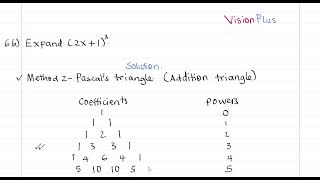 VisionPlus
66) Expand (2x+1)³
Solution
✓ Method 2 - Pascal's triangle (Addition triangle)
Coefficients Powers
1 0
1 1 1
1 2 1 2
✓ 1 3 3 1 3
1 4 6 4 1 4
5 10 10 5 5